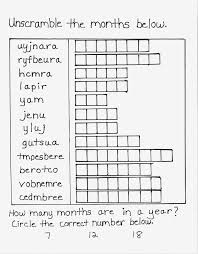 Unscramble the months below.
uyjnara
ryfbeura
hcmra
lapir
yam
jenu
yluj
gutsua
tmpesbere
berotco
vobnemre
cedmbree
How many months are in a year?
Circle the correct number below.
7 12 18